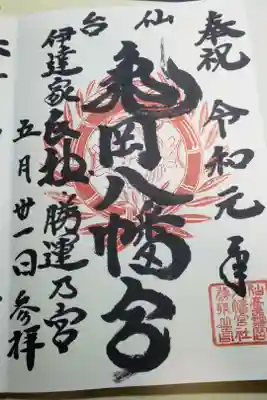 奉祝 令和元年
仙台
亀岡八幡宮
伊達家氏社・勝運乃宮
五月廿一日参拝